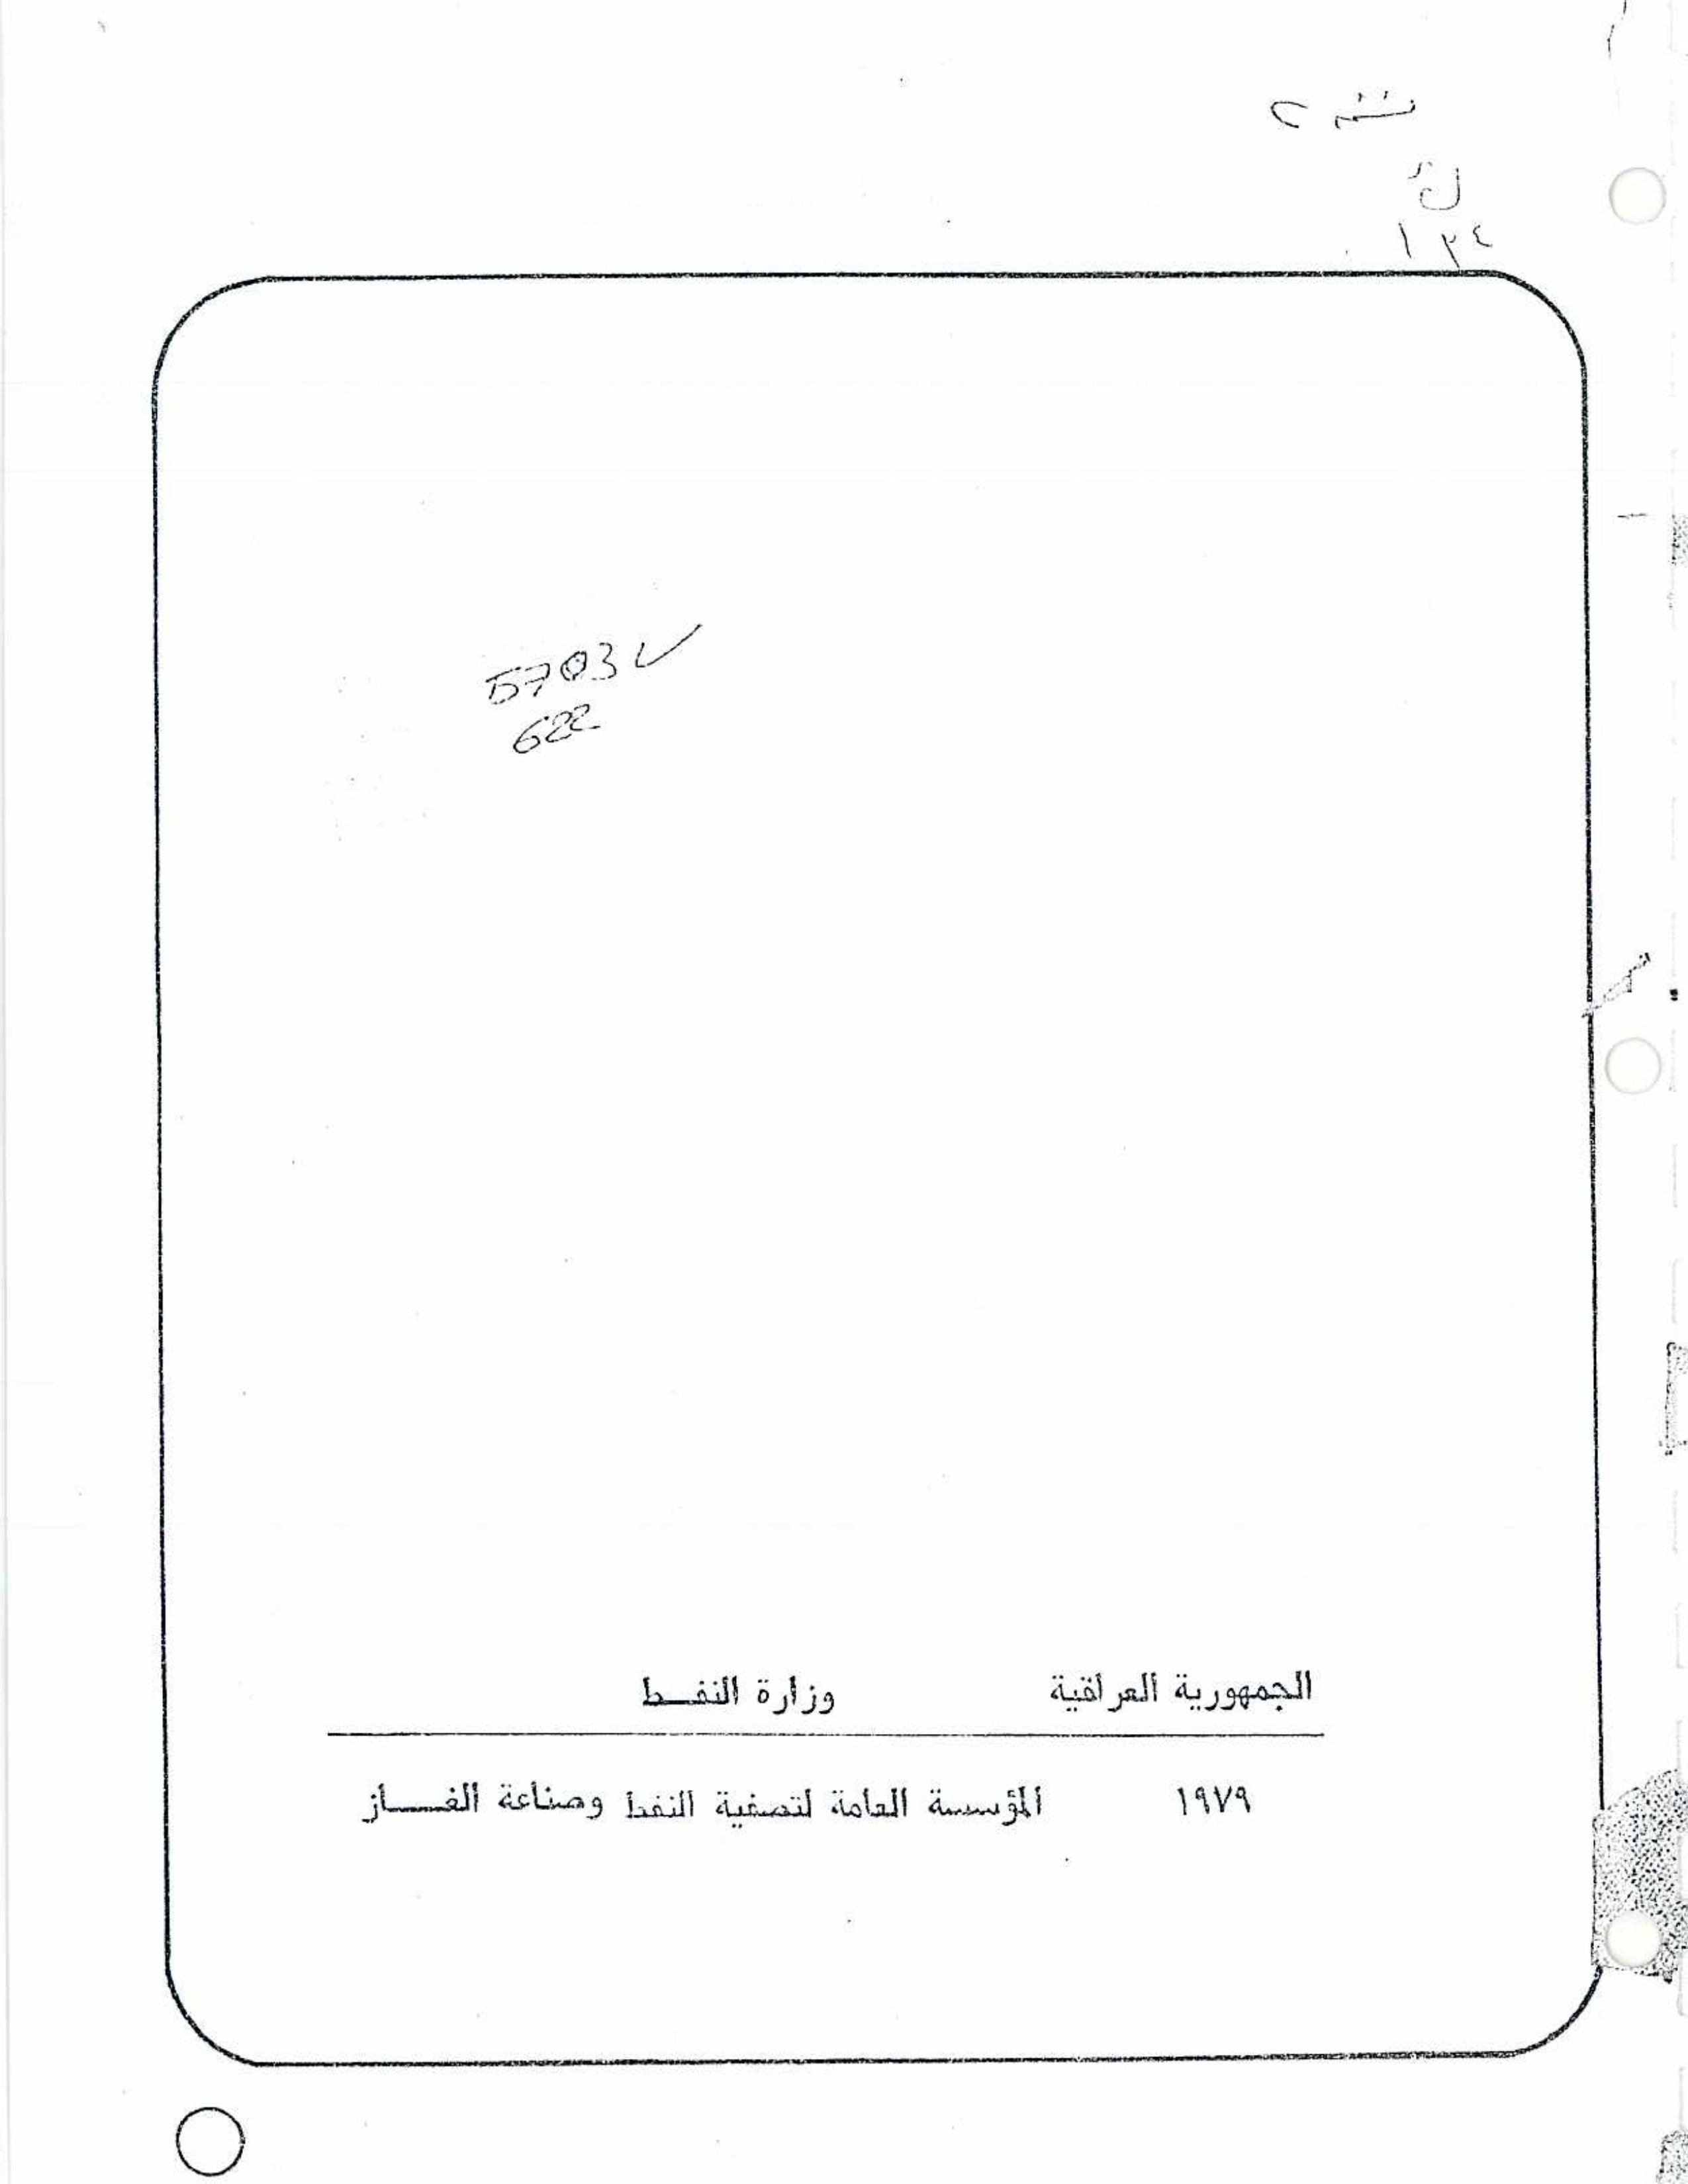 ١٣٤
5703
622
الجمهورية العراقية وزارة النفـــط
١٩٧٩ المؤسسة العامة لتصفية النفط وصناعة الغـــــاز